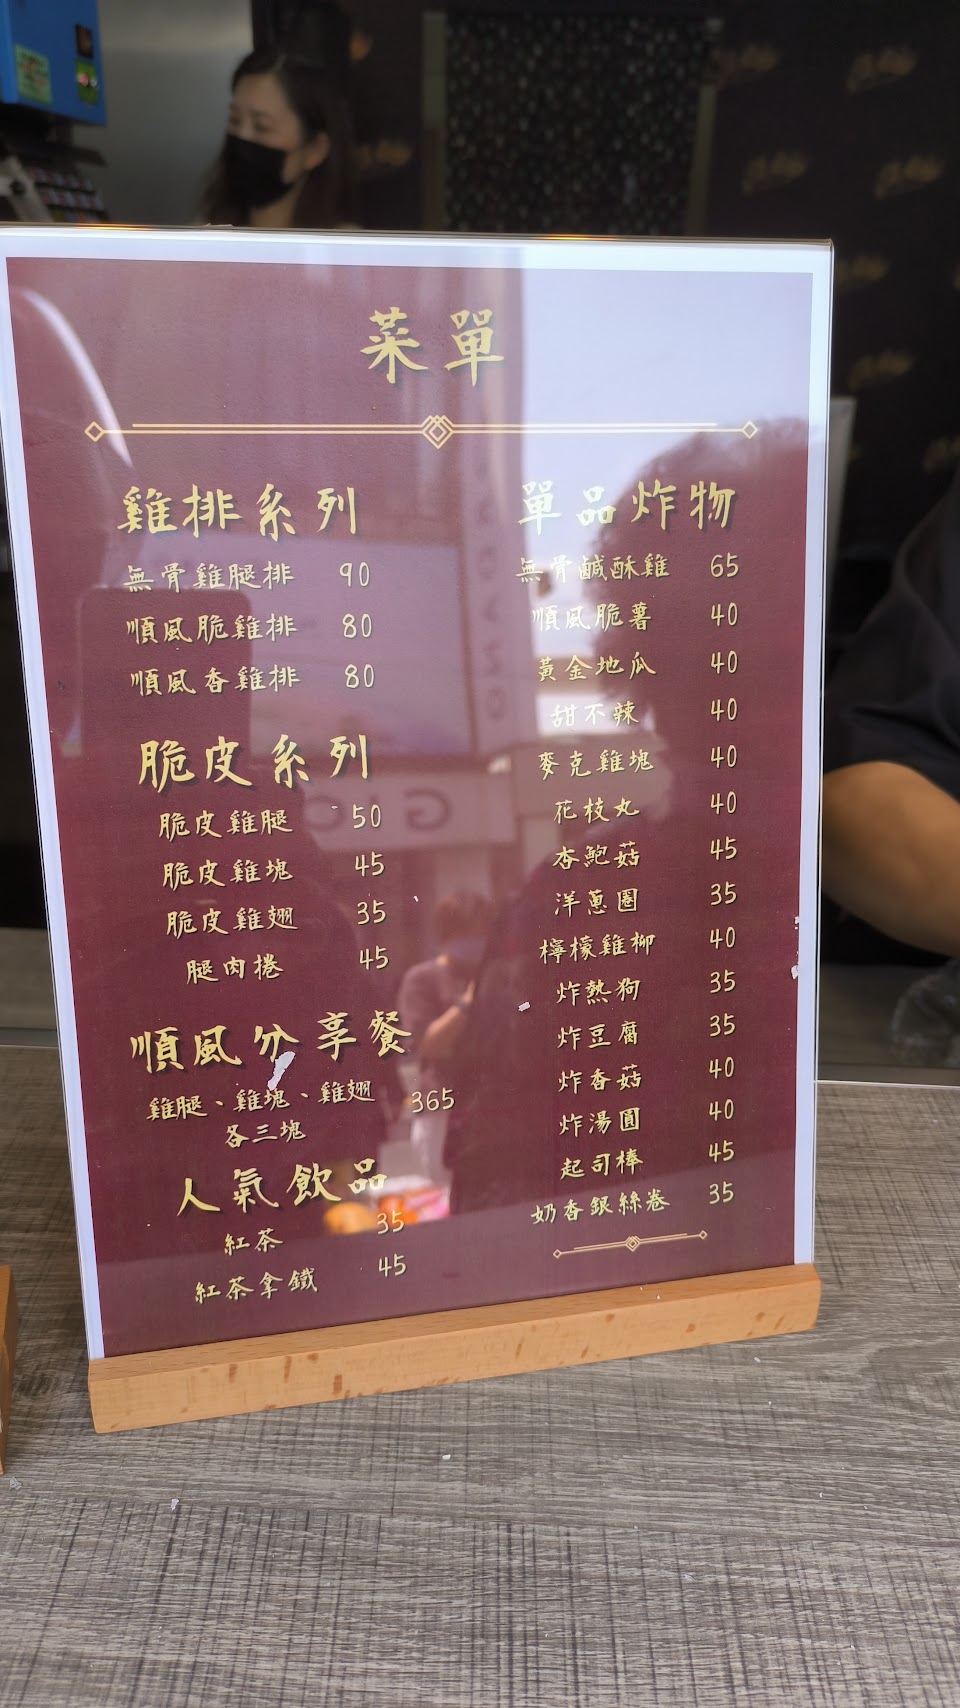 菜單
雞排系列
無骨雞腿排 90
順風脆雞排 80
順風香雞排 80
脆皮系列
脆皮雞腿 50
脆皮雞塊 45
脆皮雞翅 35
腿肉捲 45
順風分享餐
雞腿、雞塊、雞翅 365
各三塊
人氣飲品
紅茶 35
紅茶拿鐵 45
單品炸物
無骨鹹酥雞 65
順風脆薯 40
黃金地瓜 40
甜不辣 40
麥克雞塊 40
花枝丸 40
杏鮑菇 45
洋蔥圈 35
檸檬雞柳 40
炸熱狗 35
炸豆腐 35
炸香菇 40
炸湯圓 40
起司棒 45
奶香銀絲卷 35